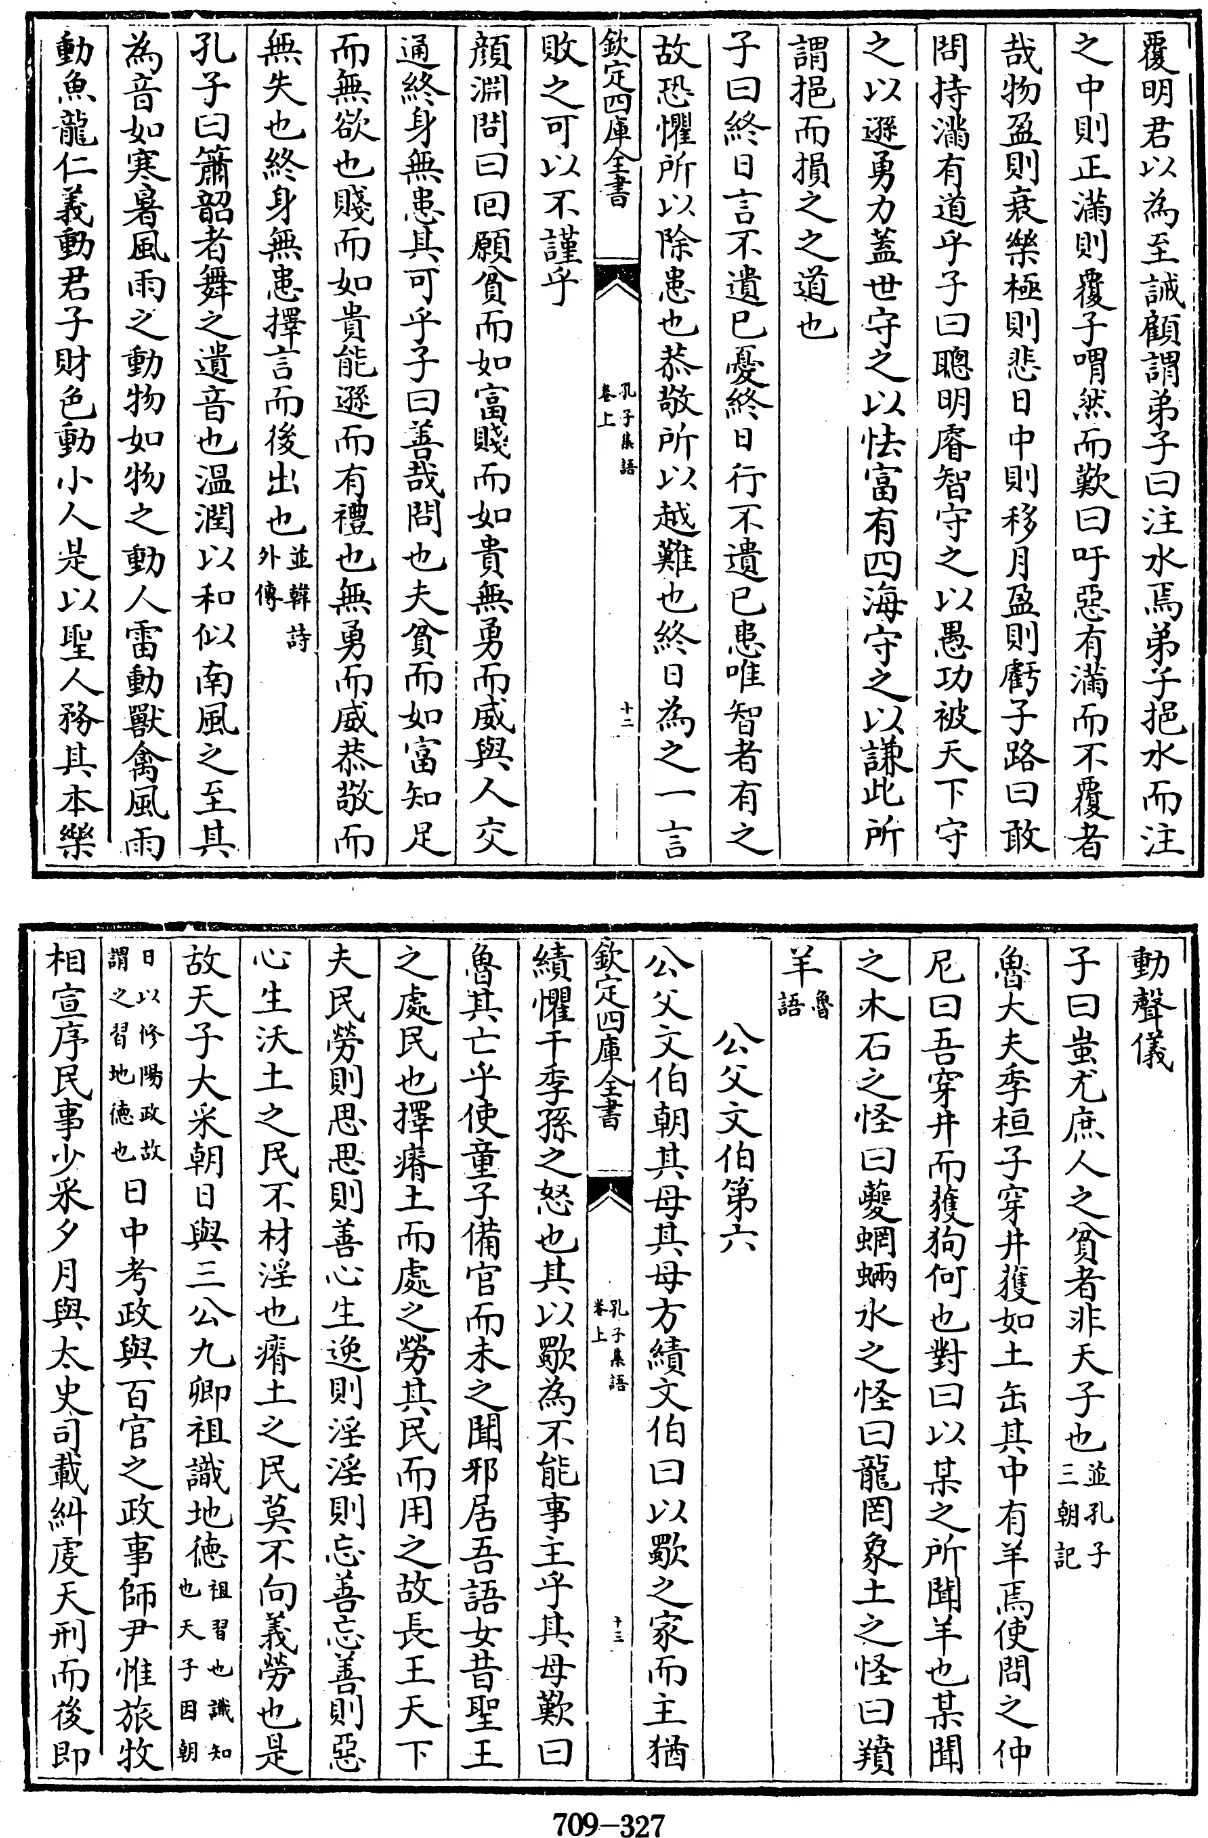 覆明君以為至誠顧謂弟子曰注水焉弟子挹水而注
之中則正滿則覆子喟然而歎曰吁惡有滿而不覆者
哉物盈則衰樂極則悲日中則移月盈則虧子路曰敢
問持滿有道乎子曰聰明睿智守之以愚功被天下守
之以遜勇力蓋世守之以怯富有四海守之以謙此所
謂挹而損之之道也
子曰終日言不遺已憂終日行不遺已患唯智者有之
故恐懼所以除患也恭敬所以越難也終日為之一言
欽定四庫全書
孔子集語
卷上
十二
敗之可以不謹乎
顔淵問曰回願貧而如富賤而如貴無勇而威與人交
通終身無患其可乎子曰善哉問也夫貧而如富知足
而無欲也賤而如貴能遜而有禮也無勇而威恭敬而
無失也終身無患擇言而後出也並韓詩外傳
孔子曰簫韶者舞之遺音也温潤以和似南風之至其
為音如寒暑風雨之動物如物之動人雷動獸禽風雨
動魚龍仁義動君子財色動小人是以聖人務其本樂
動聲儀
子曰蚩尤庶人之貧者非天子也並孔子三朝記
魯大夫季桓子穿井獲如土缶其中有羊焉使問之仲
尼曰吾穿井而獲狗何也對曰以某之所聞羊也某聞
之木石之怪曰夔蝄蜽水之怪曰龍罔象土之怪曰羵
羊魯語
公父文伯第六
公父文伯朝其母其母方績文伯曰以歜之家而主猶
欽定四庫全書
孔子集語
卷上
十三
績懼干季孫之怒也其以歜為不能事主乎其母歎曰
魯其亡乎使童子備官而未之聞邪居吾語女昔聖王
之處民也擇瘠土而處之勞其民而用之故長王天下
夫民勞則思思則善心生逸則淫淫則忘善忘善則惡
心生沃土之民不材淫也瘠土之民莫不向義勞也是
故天子大采朝日與三公九卿祖識地德祖習也識知也天子因朝
日以修陽政故謂之習地德也日中考政與百官之政事師尹惟旅牧
相宣序民事少采夕月與太史司載糾虔天刑而後即
709-327